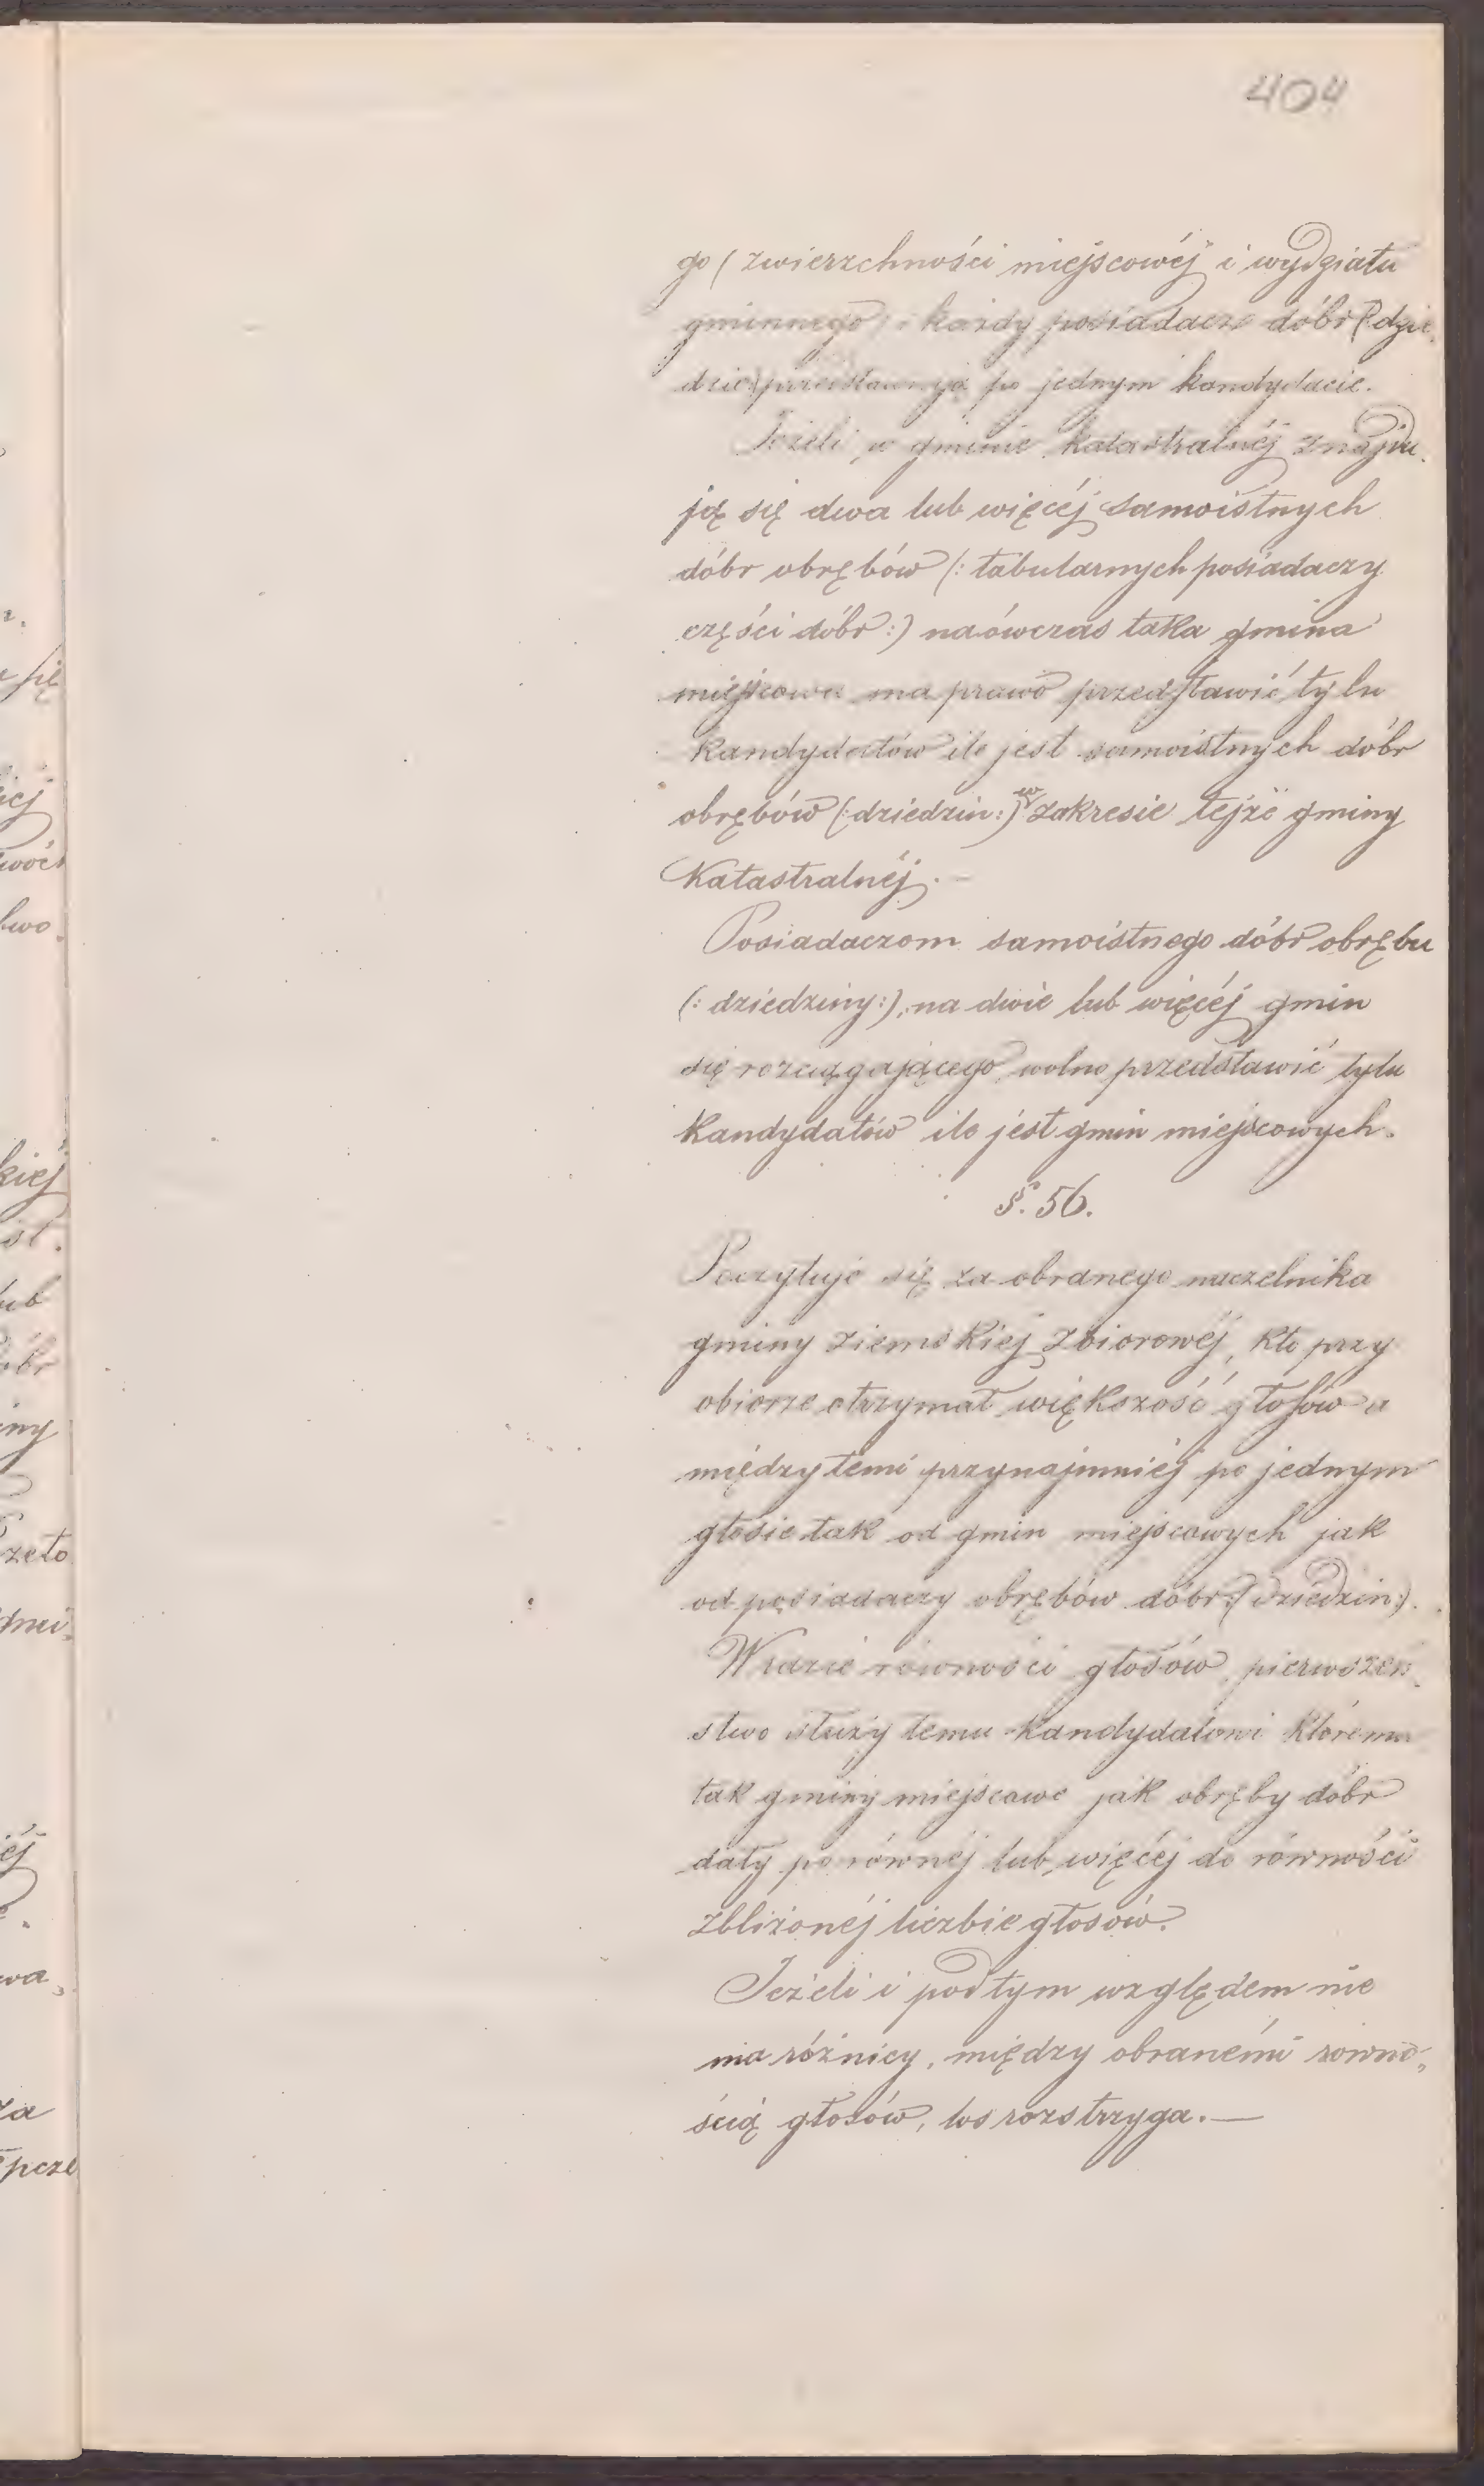 404
go (zwierzchności miejscowéj i wydziału
gminnego) i każdy posiadacz dóbr (:dzie„
dzic:) przedstawują po jednym kandydacie.
Jeżeli w gminie katastralnéj znajdu„
ją się dwa lub więcéj samoistnych
dóbr obrębów (: tabularnych posiadaczy
części dóbr :) naówczas taka gmina
miejscowa ma prawo przedstawić tylu
kandydatów ile jest samoistnych dóbr
obrębów (: dziedzin :) w zakresie tejże gminy
Katastralnéj. —
Posiadaczom samoistnego dóbr obrębu
(: dziedziny :), na dwie lub więcéj gmin
się rozciągającego, wolno przedstawić tylu
kandydatów ile jest gmin miejscowych.
§. 56.
Poczytuje się za obranego naczelnika
gminy ziemskiej zbiorowéj, kto przy
obiorze otrzymał większość głosów a
między temi przynajmniéj po jednym
głosie tak od gmin miejscowych jak
od posiadaczy obrębów dóbr (: dziedzin :).
W razie równości głosów, pierwszeń„
stwo służy temu kandydatowi któremu
tak gminy miejscowe jak obręby dóbr
dały po równéj lub więcéj do równości
zbliżonéj liczbie głosów.
Jeżeli i pod tym względem nie
ma różnicy, między obranémi równo„
ścią głosów, los rozstrzyga. —